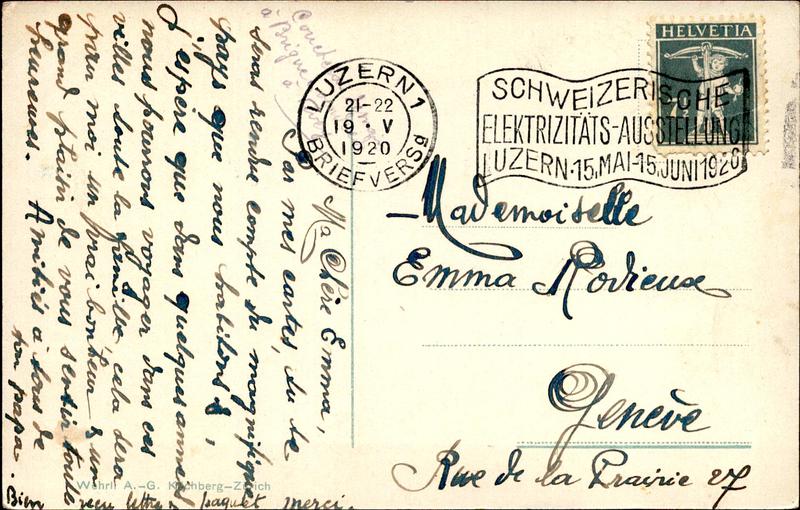 HELVETIA
LUZERN 1
21-22
19·V
1920
BRIEFVERSd
SCHWEIZERISCHE
ELEKTRIZITÄTS-AUSSTELLUNG
LUZERN·15.MAI-15.JUNI 1920
Mademoiselle
Emma Rodieux
Genève
Rue de la Prairie 27
Ma Chère Emma,
Par mes cartes, tu te
seras rendre compte du magnifique
pays que nous habitons.
J'espère que dans quelques années
nous pourrons voyager dans ces
villes toute la famille, cela sera
pour moi un vrai bonheur & un
grand plaisir de vous sentir tous
heureuses. Amitiés à tous de
ton papa.
Bien reçu lettre & paquet merci.
à Brigue
Wehrli A.-G. Kilchberg-Zürich